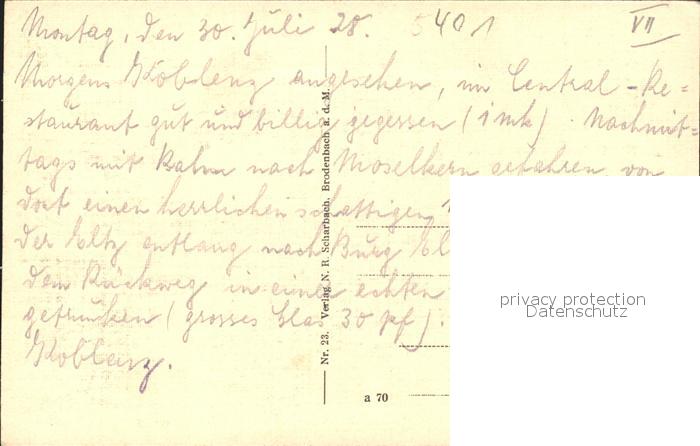 Montag, den 30. Juli 28. 5401 VII
Morgens Koblenz angesehen, im Central-Re=
staurant gut und billig gegessen (1 mk). Nachmit=
tags mit Bahn nach Moselkern gefahren von
dort einen herrlichen schattigen
der Eltz entlang nach Burg El
dem Rückweg in einer echten
getrunken (grosses Glas 30 pf).
Koblenz.
Nr. 23. Verlag N. R. Scharbach, Brodenbach a. d. M.
a 70
privacy protection
Datenschutz